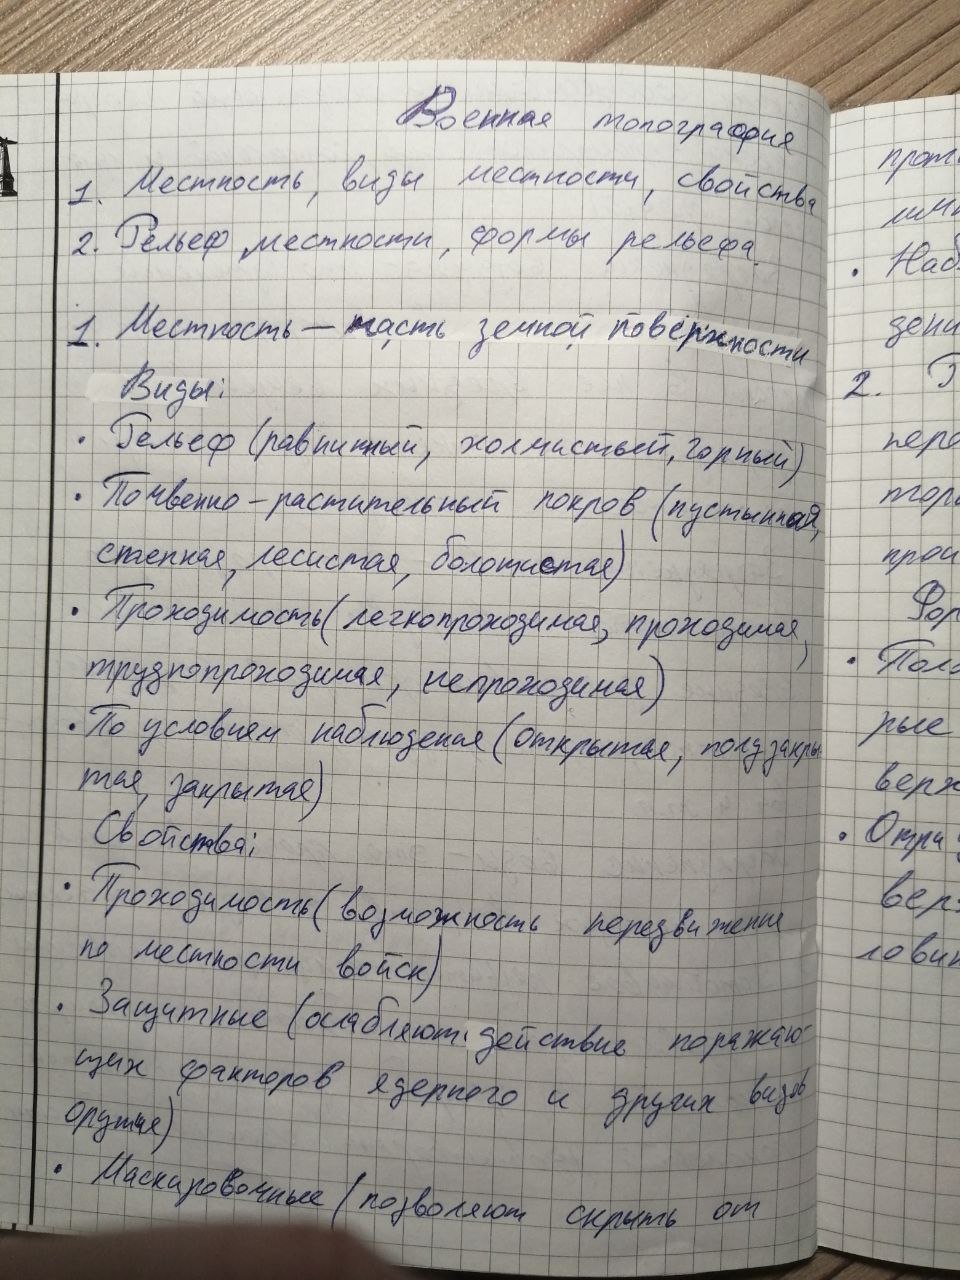 Военная топография
1. Местность, виды местности, свойства
2. Рельеф местности, формы рельефа.
1. Местность — часть земной поверхности
Виды:
• Рельеф (равнинный, холмистый, горный)
• Почвенно-растительный покров (пустынная,
степная, лесистая, болотистая)
• Проходимость (легкопроходимая, проходимая,
труднопроходимая, непроходимая)
• По условиям наблюдения (открытая, полузакры
тая, закрытая)
Свойства:
• Проходимость (возможность передвижение
по местности войск)
• Защитные (ослабляют действие поражаю-
щих факторов ядерного и других видов
оружия)
• Маскировочные (позволяют скрыть от
2.
рые